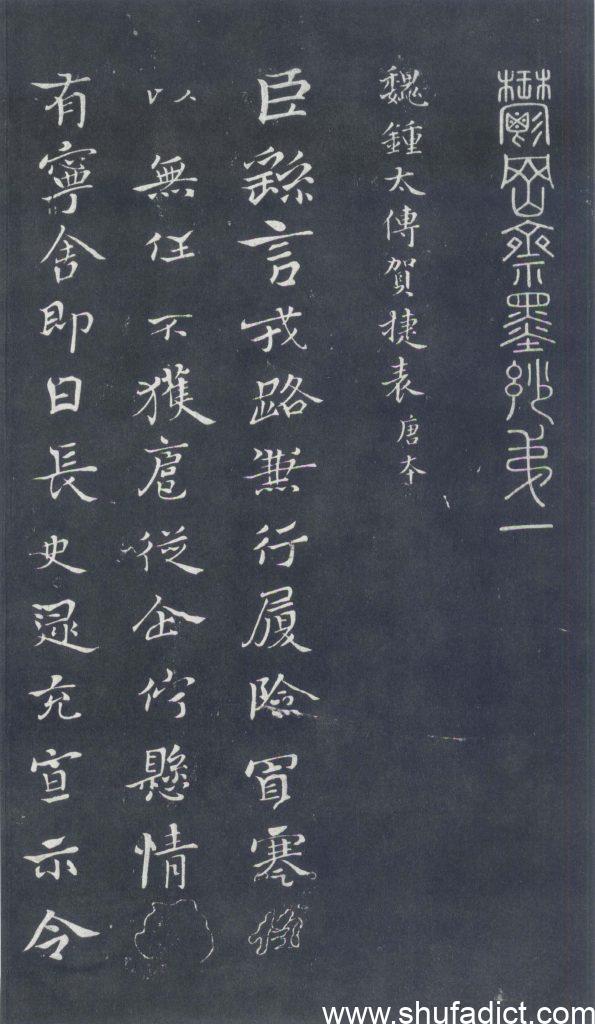 鬱岡齋墨妙弟一
魏鍾太傅賀捷表 唐本
臣繇言戎路兼行履險冒寒
以無任不獲扈從企佇懸情
有寧舍即日長史逯充宣示令
www.shufadict.com